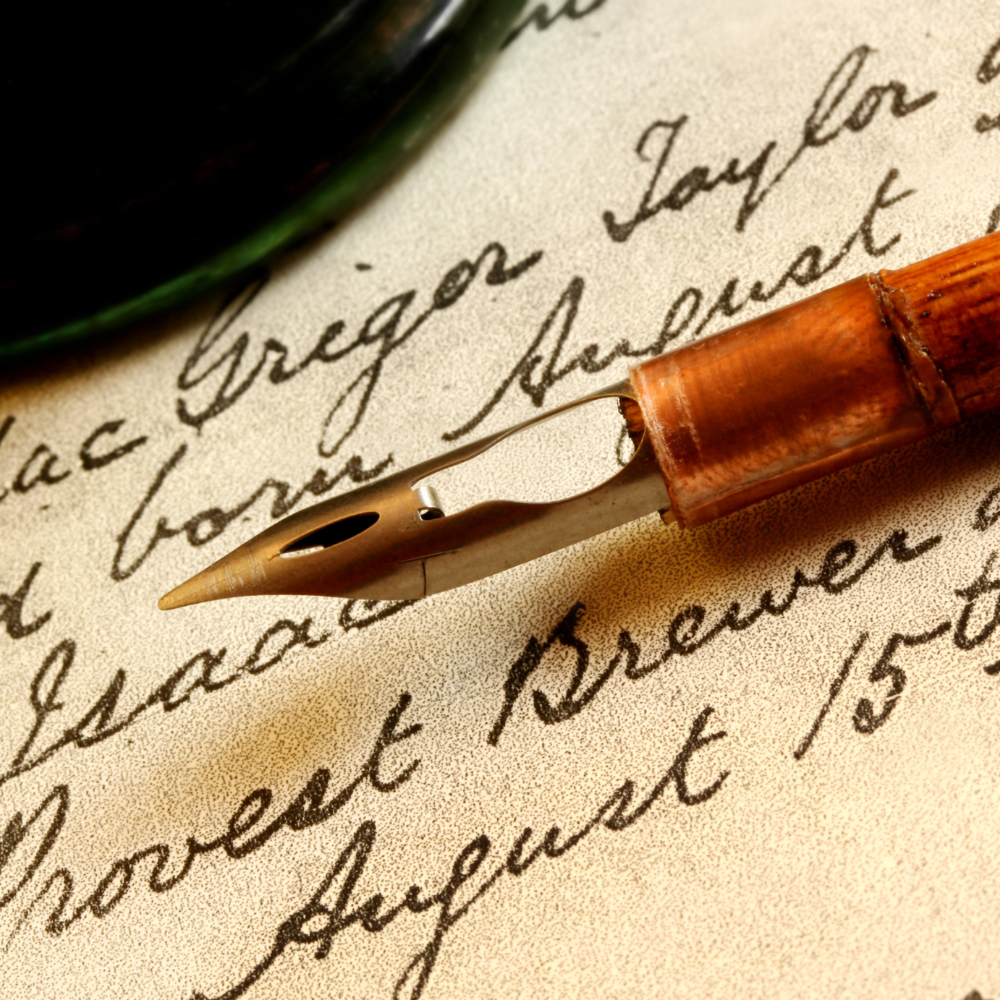 Mac Gregor Taylor
born August
Isaac
Provost Brewer
August 15th